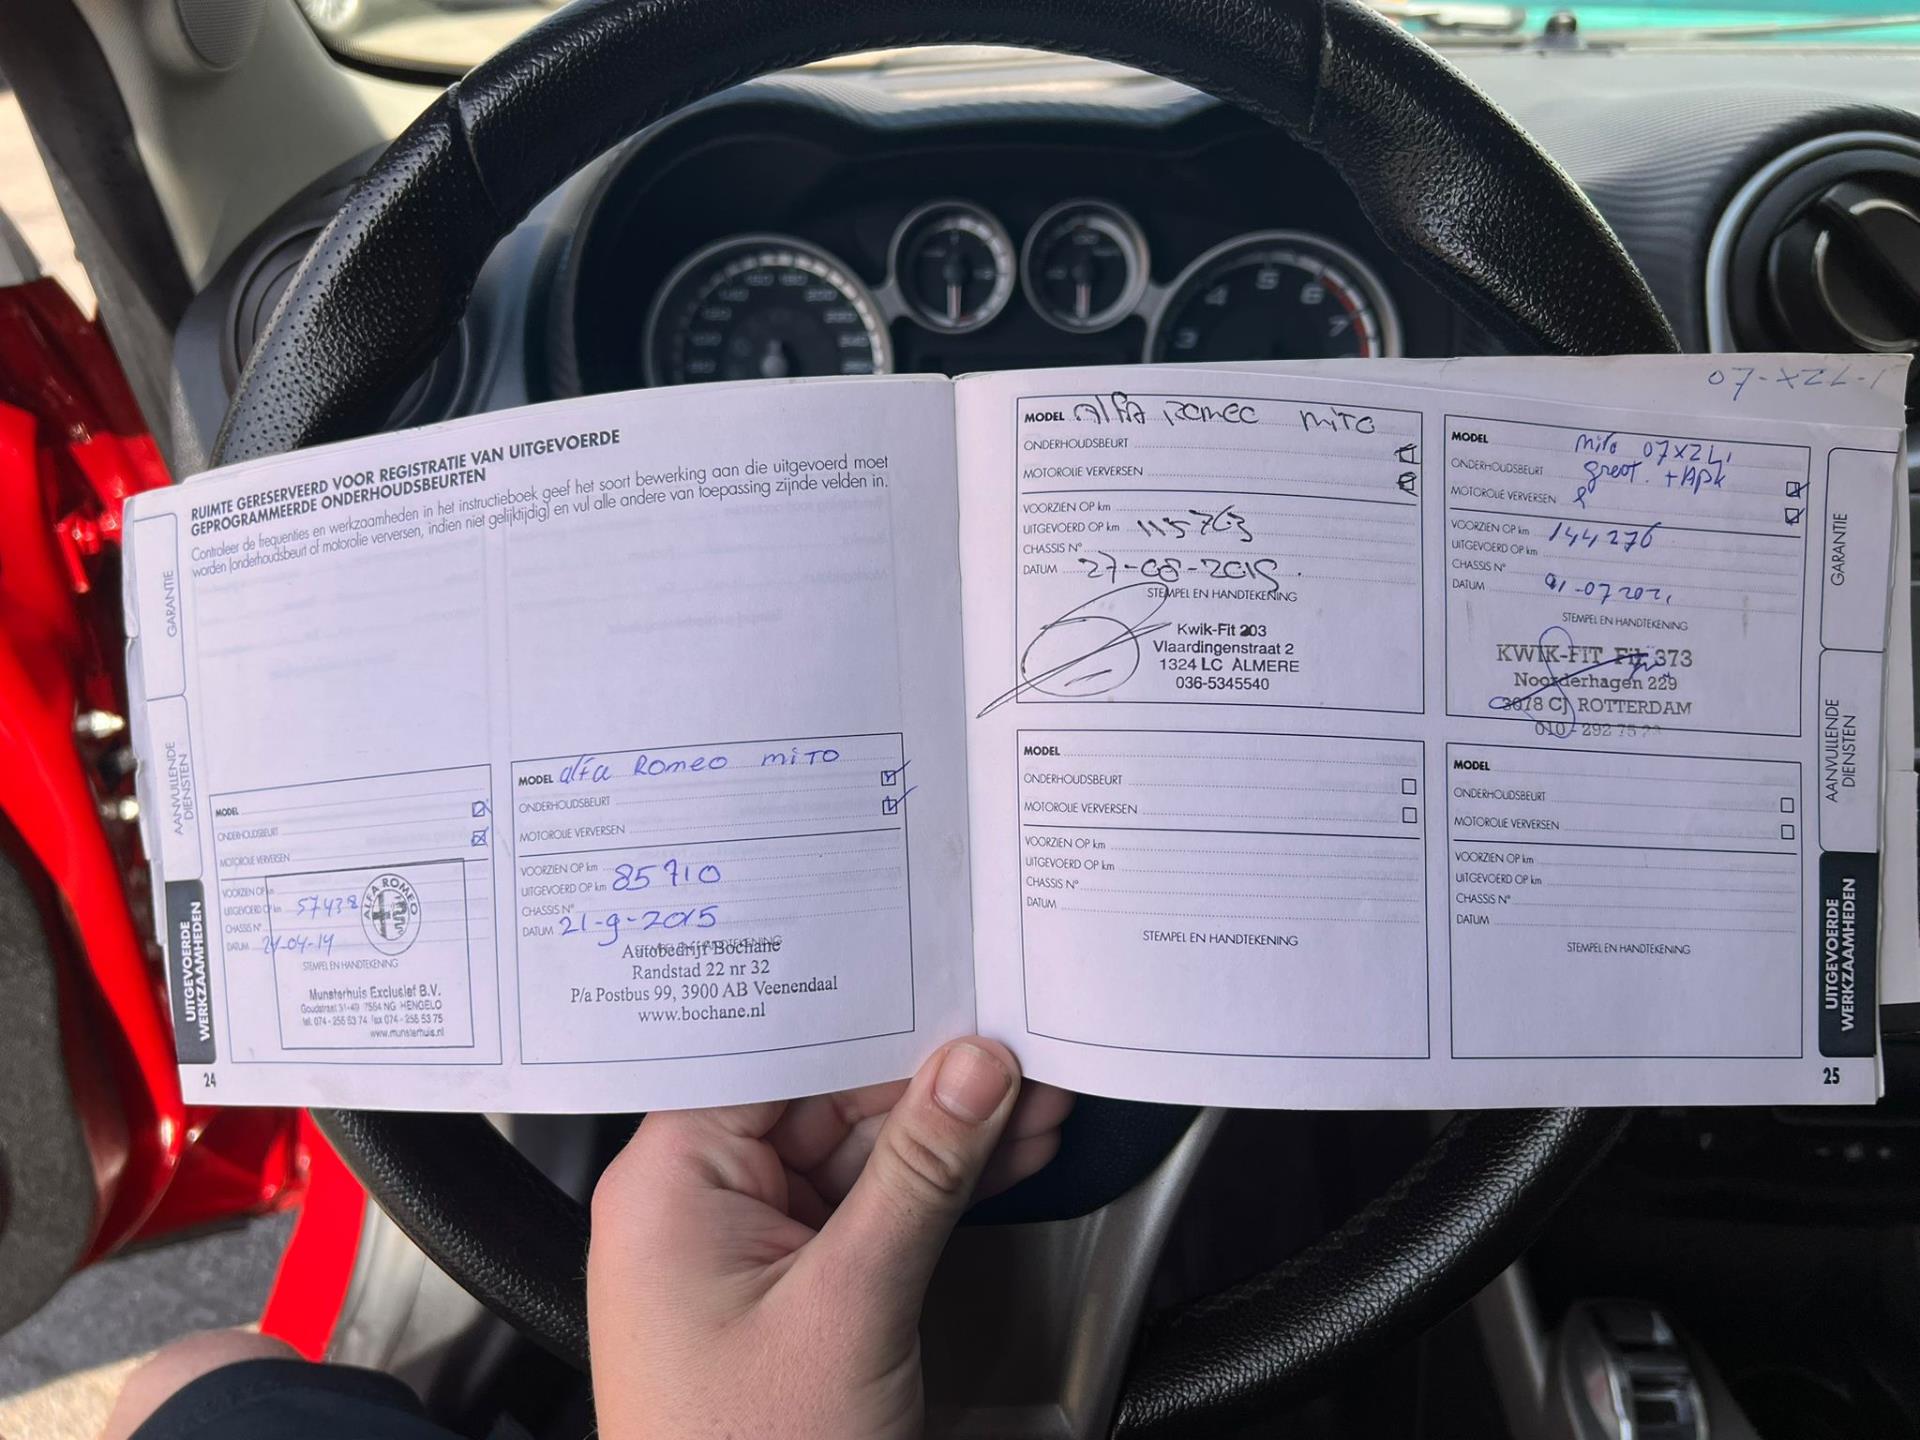 RUIMTE GERESERVEERD VOOR REGISTRATIE VAN UITGEVOERDE
GEPROGRAMMEERDE ONDERHOUDSBEURTEN
Controleer de frequenties en werkzaamheden in het instructieboek geef het soort bewerking aan die uitgevoerd moet
worden (onderhoudsbeurt of motorolie verversen, indien niet gelijktijdig) en vul alle andere van toepassing zijnde velden in.
GARANTIE
AANVULLENDE
DIENSTEN
UITGEVOERDE
WERKZAAMHEDEN
MODEL
ONDERHOUDSBEURT
MOTOROLIE VERVERSEN
VOORZIEN OP km
UITGEVOERD OP km 57438
CHASSIS N°
DATUM 24-04-14
STEMPEL EN HANDTEKENING
ALFA ROMEO
Munsterhuis Exclusief B.V.
Goudstraat 31-49 7554 NG HENGELO
tel. 074 - 255 53 74 fax 074 - 255 53 75
www.munsterhuis.nl
MODEL alfa Romeo miTO
ONDERHOUDSBEURT
MOTOROLIE VERVERSEN
VOORZIEN OP km
UITGEVOERD OP km 85710
CHASSIS N°
DATUM 21-9-2015
STEMPEL EN HANDTEKENING
Autobedrijf Bochane
Randstad 22 nr 32
P/a Postbus 99, 3900 AB Veenendaal
www.bochane.nl
24
07-XZL-1
MODEL Alfa Romeo miTO
ONDERHOUDSBEURT
MOTOROLIE VERVERSEN
VOORZIEN OP km
UITGEVOERD OP km 115763
CHASSIS N°
DATUM 27-08-2019.
STEMPEL EN HANDTEKENING
Kwik-Fit 203
Vlaardingenstraat 2
1324 LC ALMERE
036-5345540
MODEL Mito 07XZL1
ONDERHOUDSBEURT groot. + APK
MOTOROLIE VERVERSEN
VOORZIEN OP km 144276
UITGEVOERD OP km
CHASSIS N°
DATUM 01-07 2021
STEMPEL EN HANDTEKENING
KWIK-FIT Fil. 373
Noorderhagen 229
3078 CJ ROTTERDAM
010 - 292 75 23
MODEL
ONDERHOUDSBEURT
MOTOROLIE VERVERSEN
VOORZIEN OP km
UITGEVOERD OP km
CHASSIS N°
DATUM
STEMPEL EN HANDTEKENING
MODEL
ONDERHOUDSBEURT
MOTOROLIE VERVERSEN
VOORZIEN OP km
UITGEVOERD OP km
CHASSIS N°
DATUM
STEMPEL EN HANDTEKENING
GARANTIE
AANVULLENDE
DIENSTEN
UITGEVOERDE
WERKZAAMHEDEN
25
3
4
5
6
7